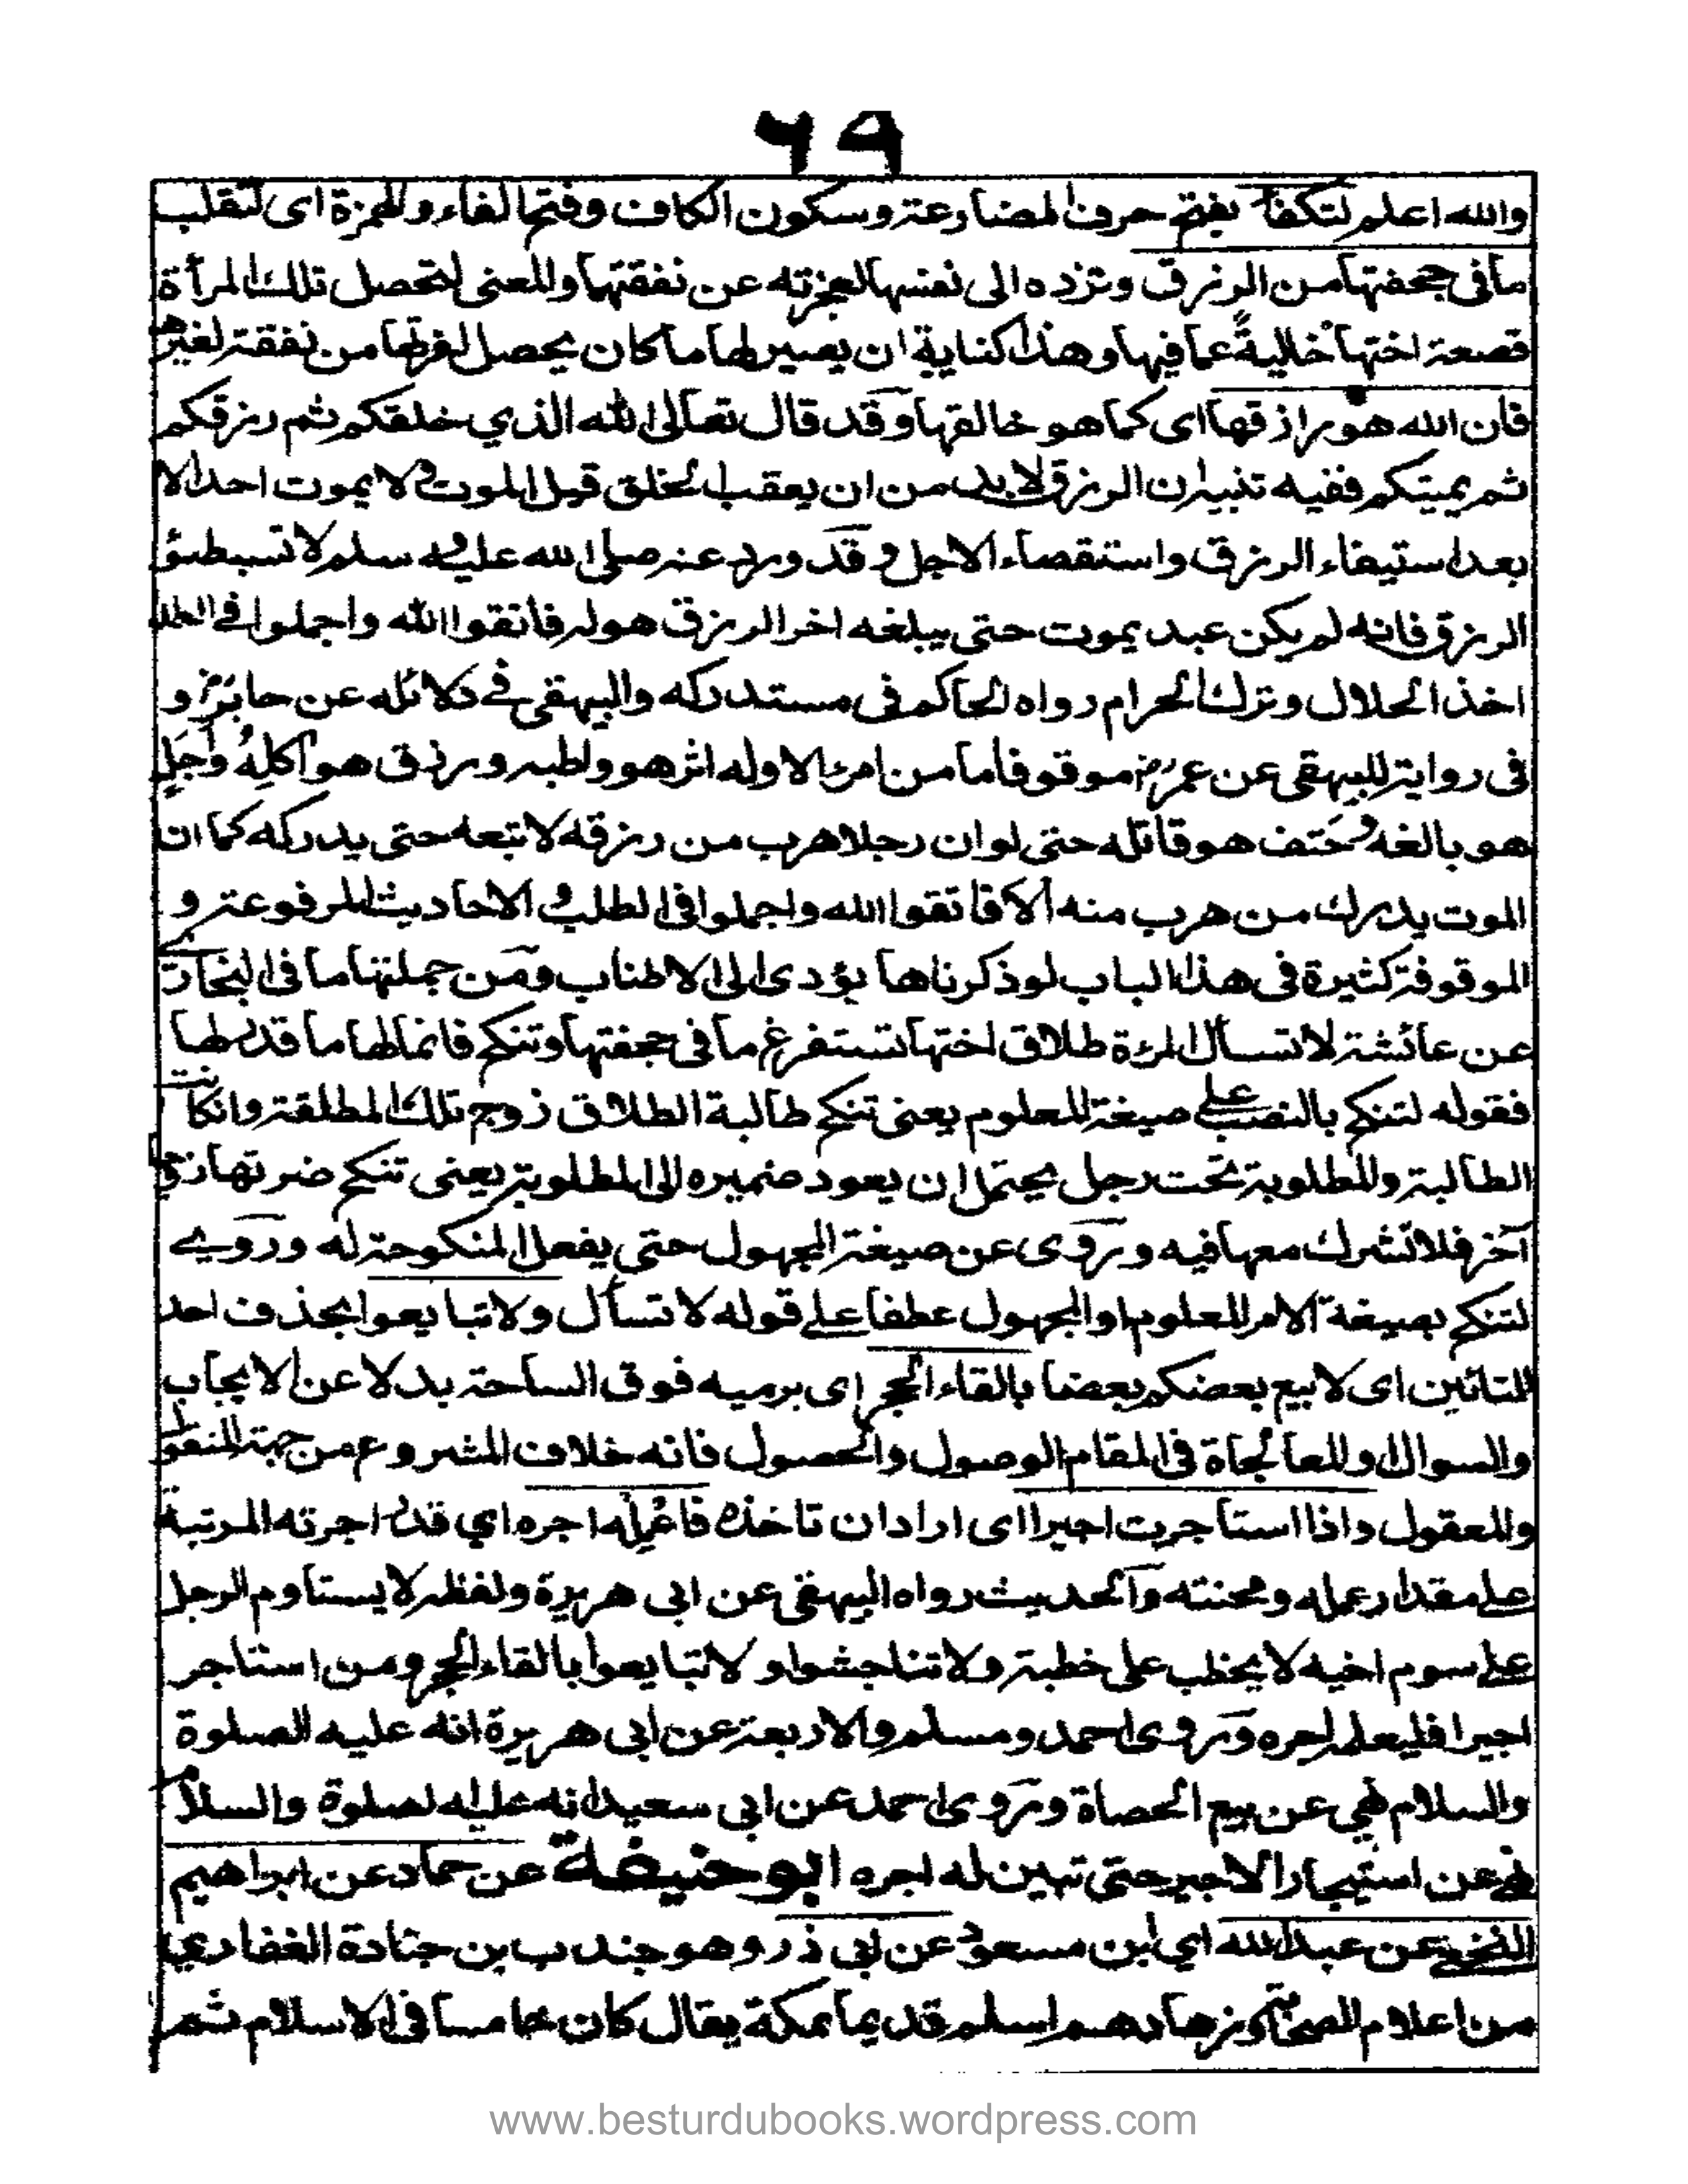 ٦٩
والله اعلم لتكفأ بفتح حرف المضارعة وسكون الكاف وفتح الفاء والهمزة اى لتقلب
ما فى جحفتها من الرزق وتزده الى نفسها لعجزته عن نفقتها والمعنى لتحصل تلك المرأة
قصعة اختها خالية عما فيها وهذا كناية ان يصير لها ما كان يحصل لغرتها من نفقة لغيرها
فان الله هو رازقها اى كما هو خالقها وقد قال تعالى الله الذي خلقكم ثم رزقكم
ثم يميتكم ففيه تنبيه ان الرزق لا بد من ان يعقب الخلق قبل الموت ولا يموت احد الا
بعد استيفاء الرزق واستنقصاء الاجل وقد ورد عنه صلى الله عليه وسلم لا تسبطئو
الرزق فانه لم يكن عبد يموت حتى يبلغه اخر الرزق هو له فاتقوا الله واجملوا فى الطلب
اخذ الحلال وترك الحرام رواه الحاكم فى مستدركه والبيهقى فى دلائله عن جابر و
فى رواية للبيهقى عن عمر موقوفا ما من امرء الا وله اثر هو واطيه ورزق هو اكله واجل
هو بالغه وحتف هو قاتله حتى لو ان رجلا هرب من رزقه لاتبعه حتى يدركه كما ان
الموت يدرك من هرب منه الا فاتقوا الله واجملوا فى الطلب والاحاديث المرفوعة و
الموقوفة كثيرة فى هذا الباب لو ذكرناها يؤدى الى الاطناب ومن جملتها ما فى البخارى
عن عائشة لا تسأل المرءة طلاق اختها تستفرغ ما فى جحفتها وتنكح فانما لها ما قدر لها
فقوله لتنكح بالنصب على صيغة المعلوم يعنى تنكح طالبة الطلاق زوج تلك المطلقة وانكانت
الطالبة والمطلوبة تحت رجل يحتمل ان يعود ضميره الى المطلوبة يعنى تنكح ضرتها زوجا
آخر فلا تشرك معها فيه وتروى عن صيغة المجهول حتى يفعل المنكوحة له وروى
لتنكح بصيغة الامر المعلوم او المجهول عطفا على قوله لا تسأل ولا تبايعوا بحذف احد
التائين اى لا يبيع بعضكم بعضا بالقاء الحجر اى برميه فوق الساحة بدلا عن الايجاب
والسوال والمعالجاة فى المقام الوصول والحصول فانه خلاف المشروع من جهة المنقول
والمعقول واذا استاجرت اجيرا اى اراد ان تاخذه فاعلمه اجره اي قدر اجرته المرتبة
على مقدار عمله ومحنته والحديث رواه البيهقى عن ابى هريرة ولفظه لا يستاوم الرجل
على سوم اخيه لا يخطب على خطبة ولا تناجشوا ولا تبايعوا بالقاء الحجر ومن استاجر
اجيرا فليعلمه اجره وتروى احمد ومسلم والاربعة عن ابى هريرة انه عليه الصلوة
والسلام نهى عن بيع الحصاة وتروى احمد عن ابى سعيد انه عليه لصلوة والسلام
نهى عن استيجار الاجير حتى تبين له اجره ابو حنيفة عن حماد عن ابراهيم
النخعى عن عبد الله اي ابن مسعود عن ابى ذر وهو جندب بن جنادة الغفاري
من اعلام الصحابة وزهادهم اسلم قديما بمكة يقال كان خامسا فى الاسلام ثم
www.besturdubooks.wordpress.com